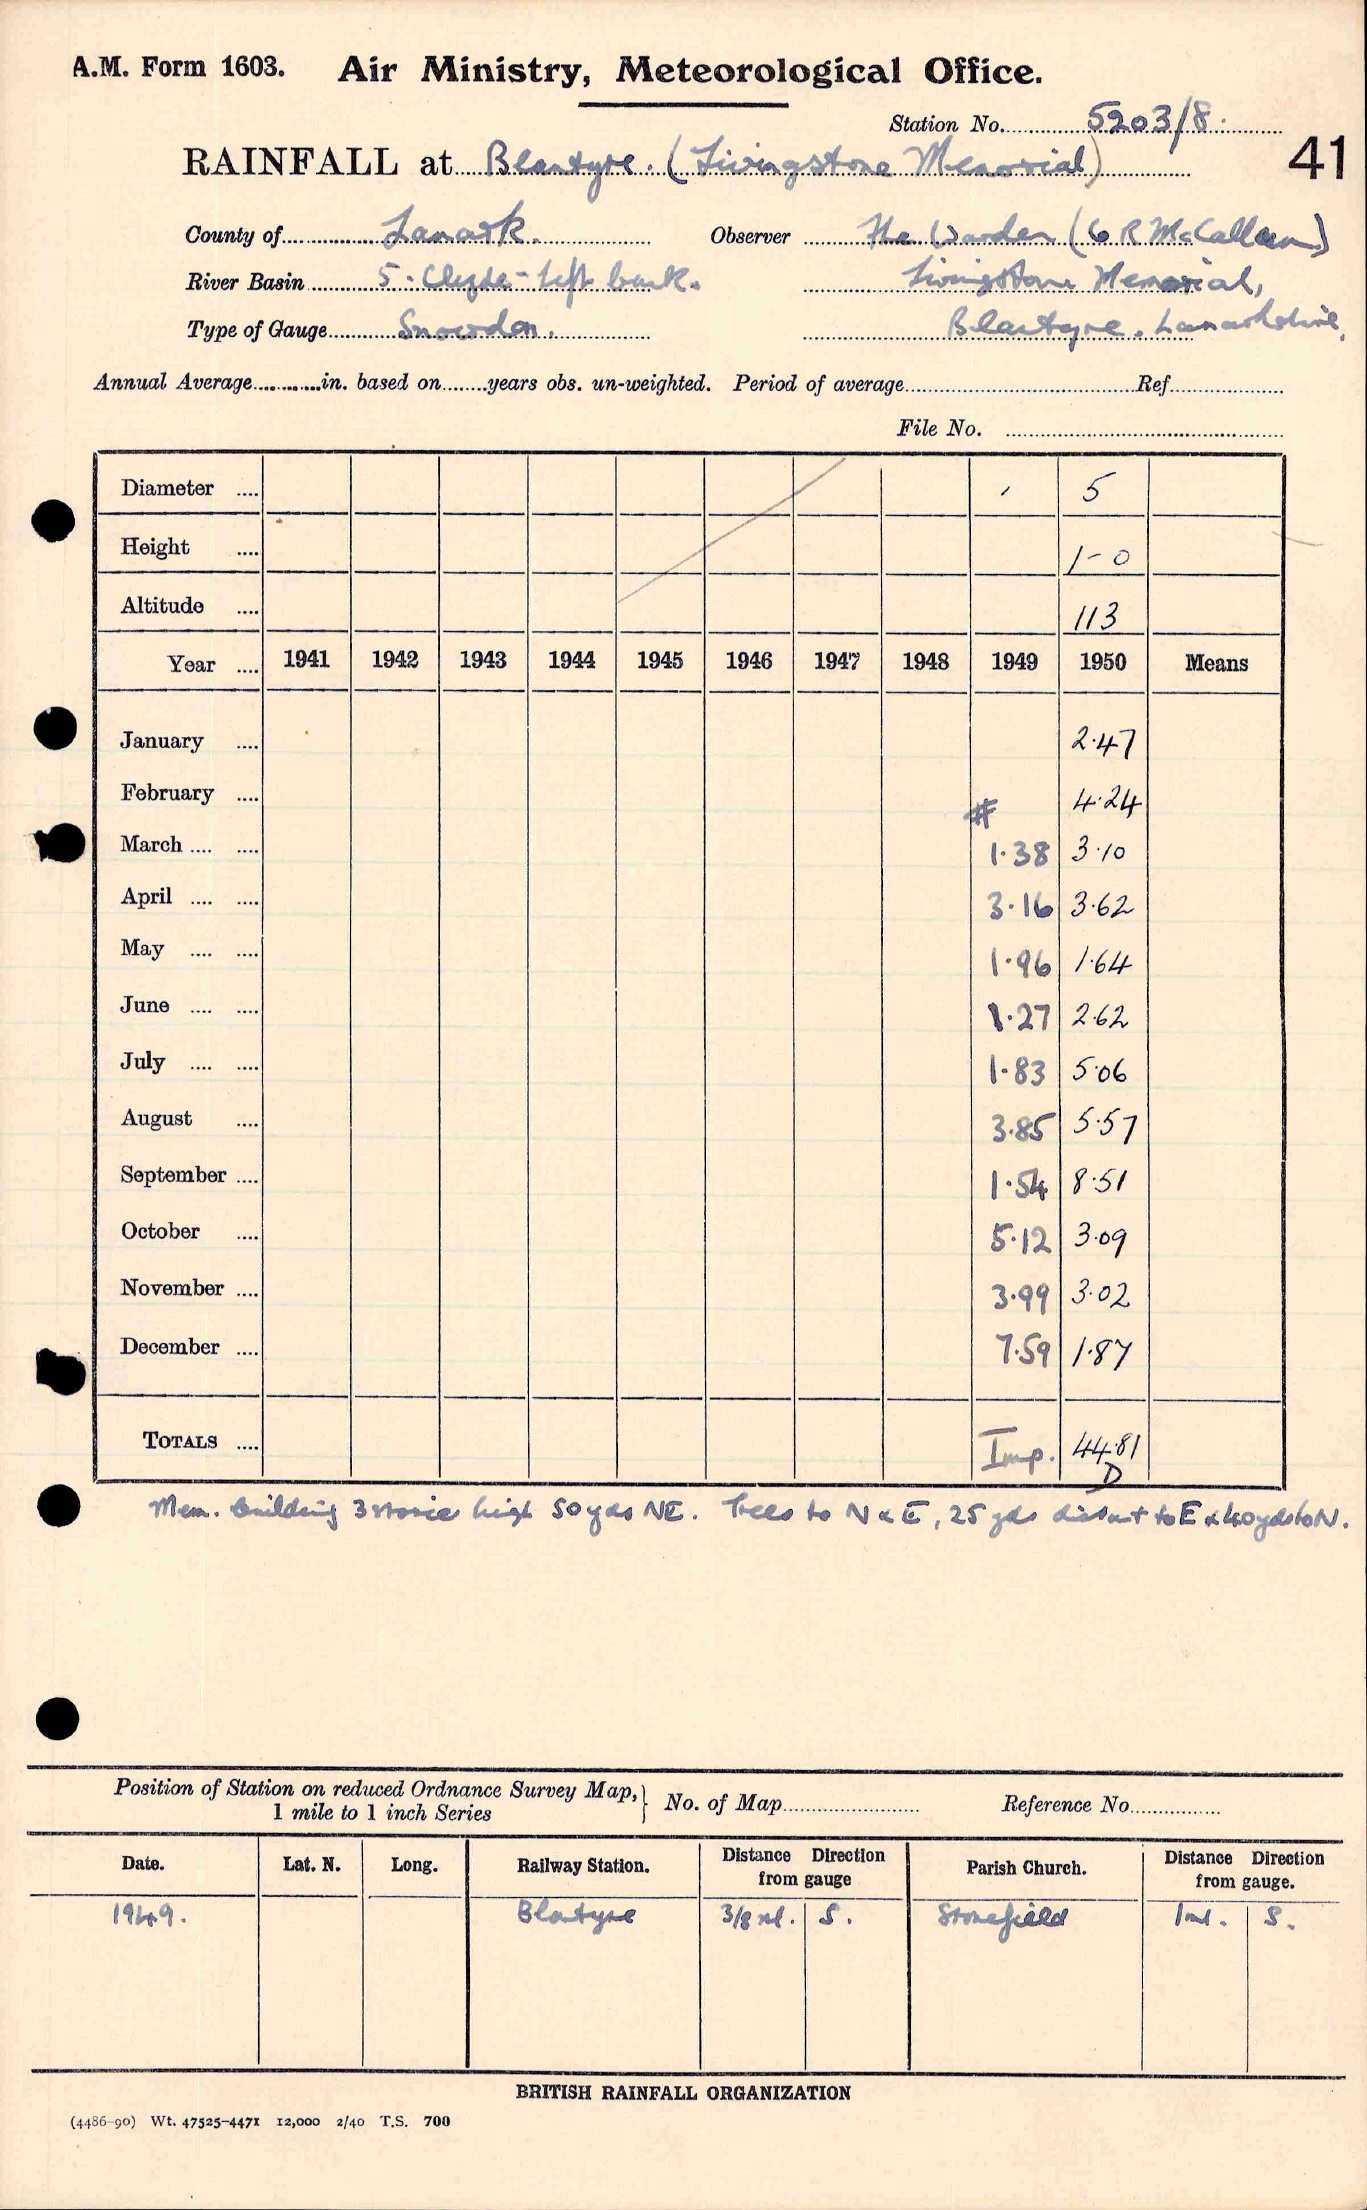 A.M. Form 1603. Air Ministry, Meteorological Office.
Station No. 5203/8.
RAINFALL at Blantyre. (Livingstone Memorial)
41
County of Lanark. Observer The Warden (G R McCallum)
River Basin 5. Clyde - Left bank. Livingstone Memorial,
Type of Gauge Snowdon. Blantyre. Lanarkshire.
Annual Average in. based on years obs. un-weighted. Period of average Ref.
File No.
Diameter 5
Height 1-0
Altitude 113
Year 1941 1942 1943 1944 1945 1946 1947 1948 1949 1950 Means
January 2.47
February # 4.24
March 1.38 3.10
April 3.16 3.62
May 1.96 1.64
June 1.27 2.62
July 1.83 5.06
August 3.85 5.57
September 1.54 8.51
October 5.12 3.09
November 3.99 3.02
December 7.59 1.87
TOTALS Imp. 44.81
D
Mem. building 3 storie high 50 yds NE. Trees to N & E, 25 yds distant to E & 40 yds to N.
Position of Station on reduced Ordnance Survey Map, No. of Map Reference No.
1 mile to 1 inch Series
Date. Lat. N. Long. Railway Station. Distance Direction from gauge Parish Church. Distance Direction from gauge.
1949. Blantyre 3/8 ml. S. Stonefield 1 ml. S.
BRITISH RAINFALL ORGANIZATION
(4486-90) Wt. 47525-4471 12,000 2/40 T.S. 700